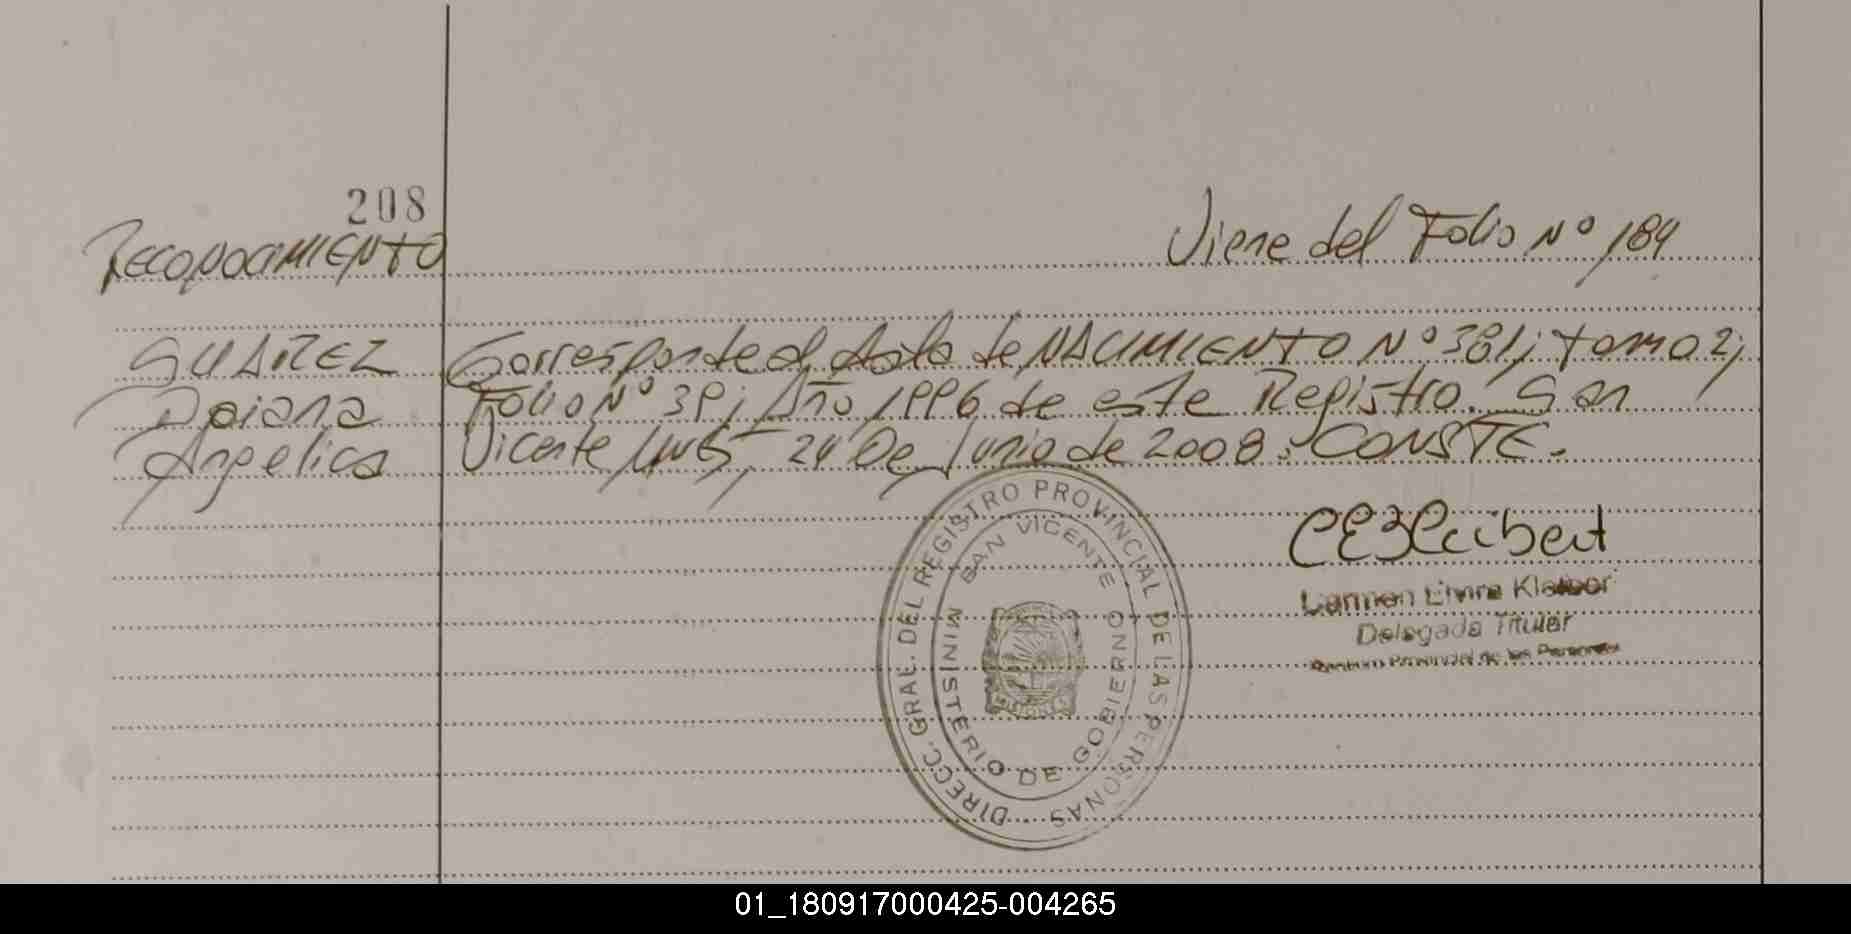 208
RECONOCIMIENTO
Viene del Folio Nº 184
SUAREZ
Daiana
Angelica
Corresponde al Acta de NACIMIENTO Nº 381; tomo 2;
Folio Nº 39; Año 1996 de este Registro. San
Vicente, 24 De Junio de 2008. CONSTE.
DIRECC. GRAL. DEL REGISTRO PROVINCIAL DE LAS PERSONAS
SAN VICENTE
MINISTERIO DE GOBIERNO
MISIONES
Carmen
Delegada Titular
Provincial de las Personas
01_180917000425-004265